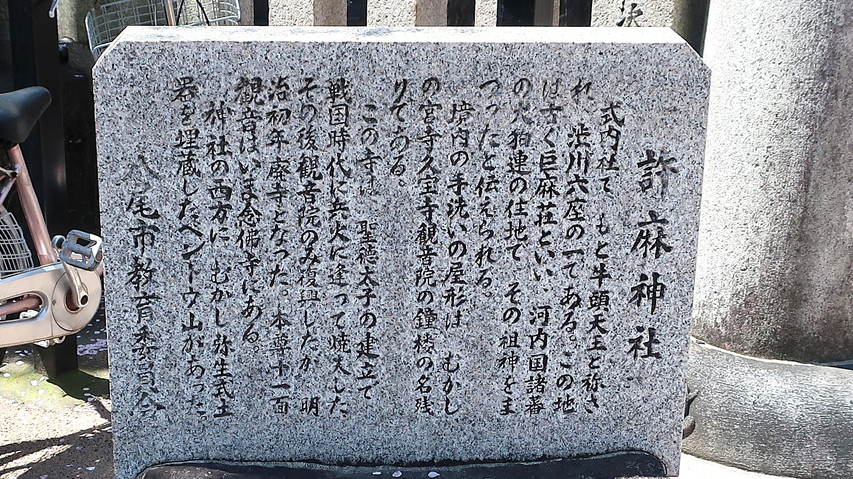 許麻神社
式内社で、もと牛頭天王と称さ
れ、渋川六座の一である。この地
は古く巨麻荘といい、河内国諸蕃
の大狛連の住地で、その祖神をま
つったと伝えられる。
境内の手洗いの屋形は、むかし
の宮寺久宝寺観音院の鐘楼の名残
りである。
この寺は、聖徳太子の建立で
戦国時代に兵火に逢って焼失した
その後観音院のみ復興したが、明
治初年廃寺となった。本尊十一面
観音はいま念佛寺にある。
神社の西方に、むかし弥生式土
器を埋蔵したベントウ山があった。
八尾市教育委員会